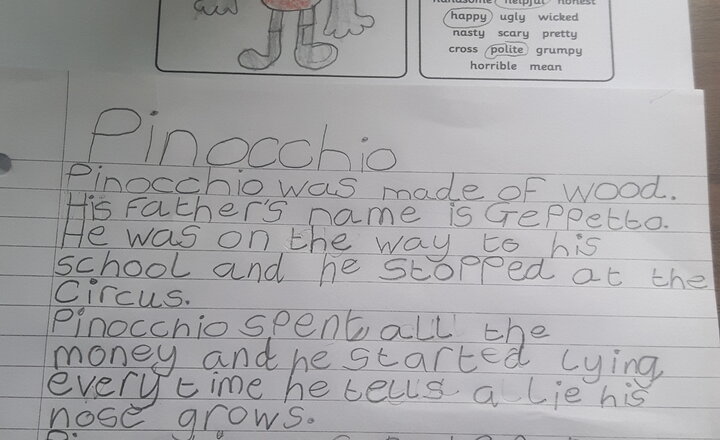 handsome helpful honest
happy ugly wicked
nasty scary pretty
cross polite grumpy
horrible mean
Pinocchio
Pinocchio was made of wood.
His Father's name is Geppetto.
He was on the way to his
school and he stopped at the
Circus.
Pinocchio spent all the
money and he started lying
every time he tells a lie his
nose grows.